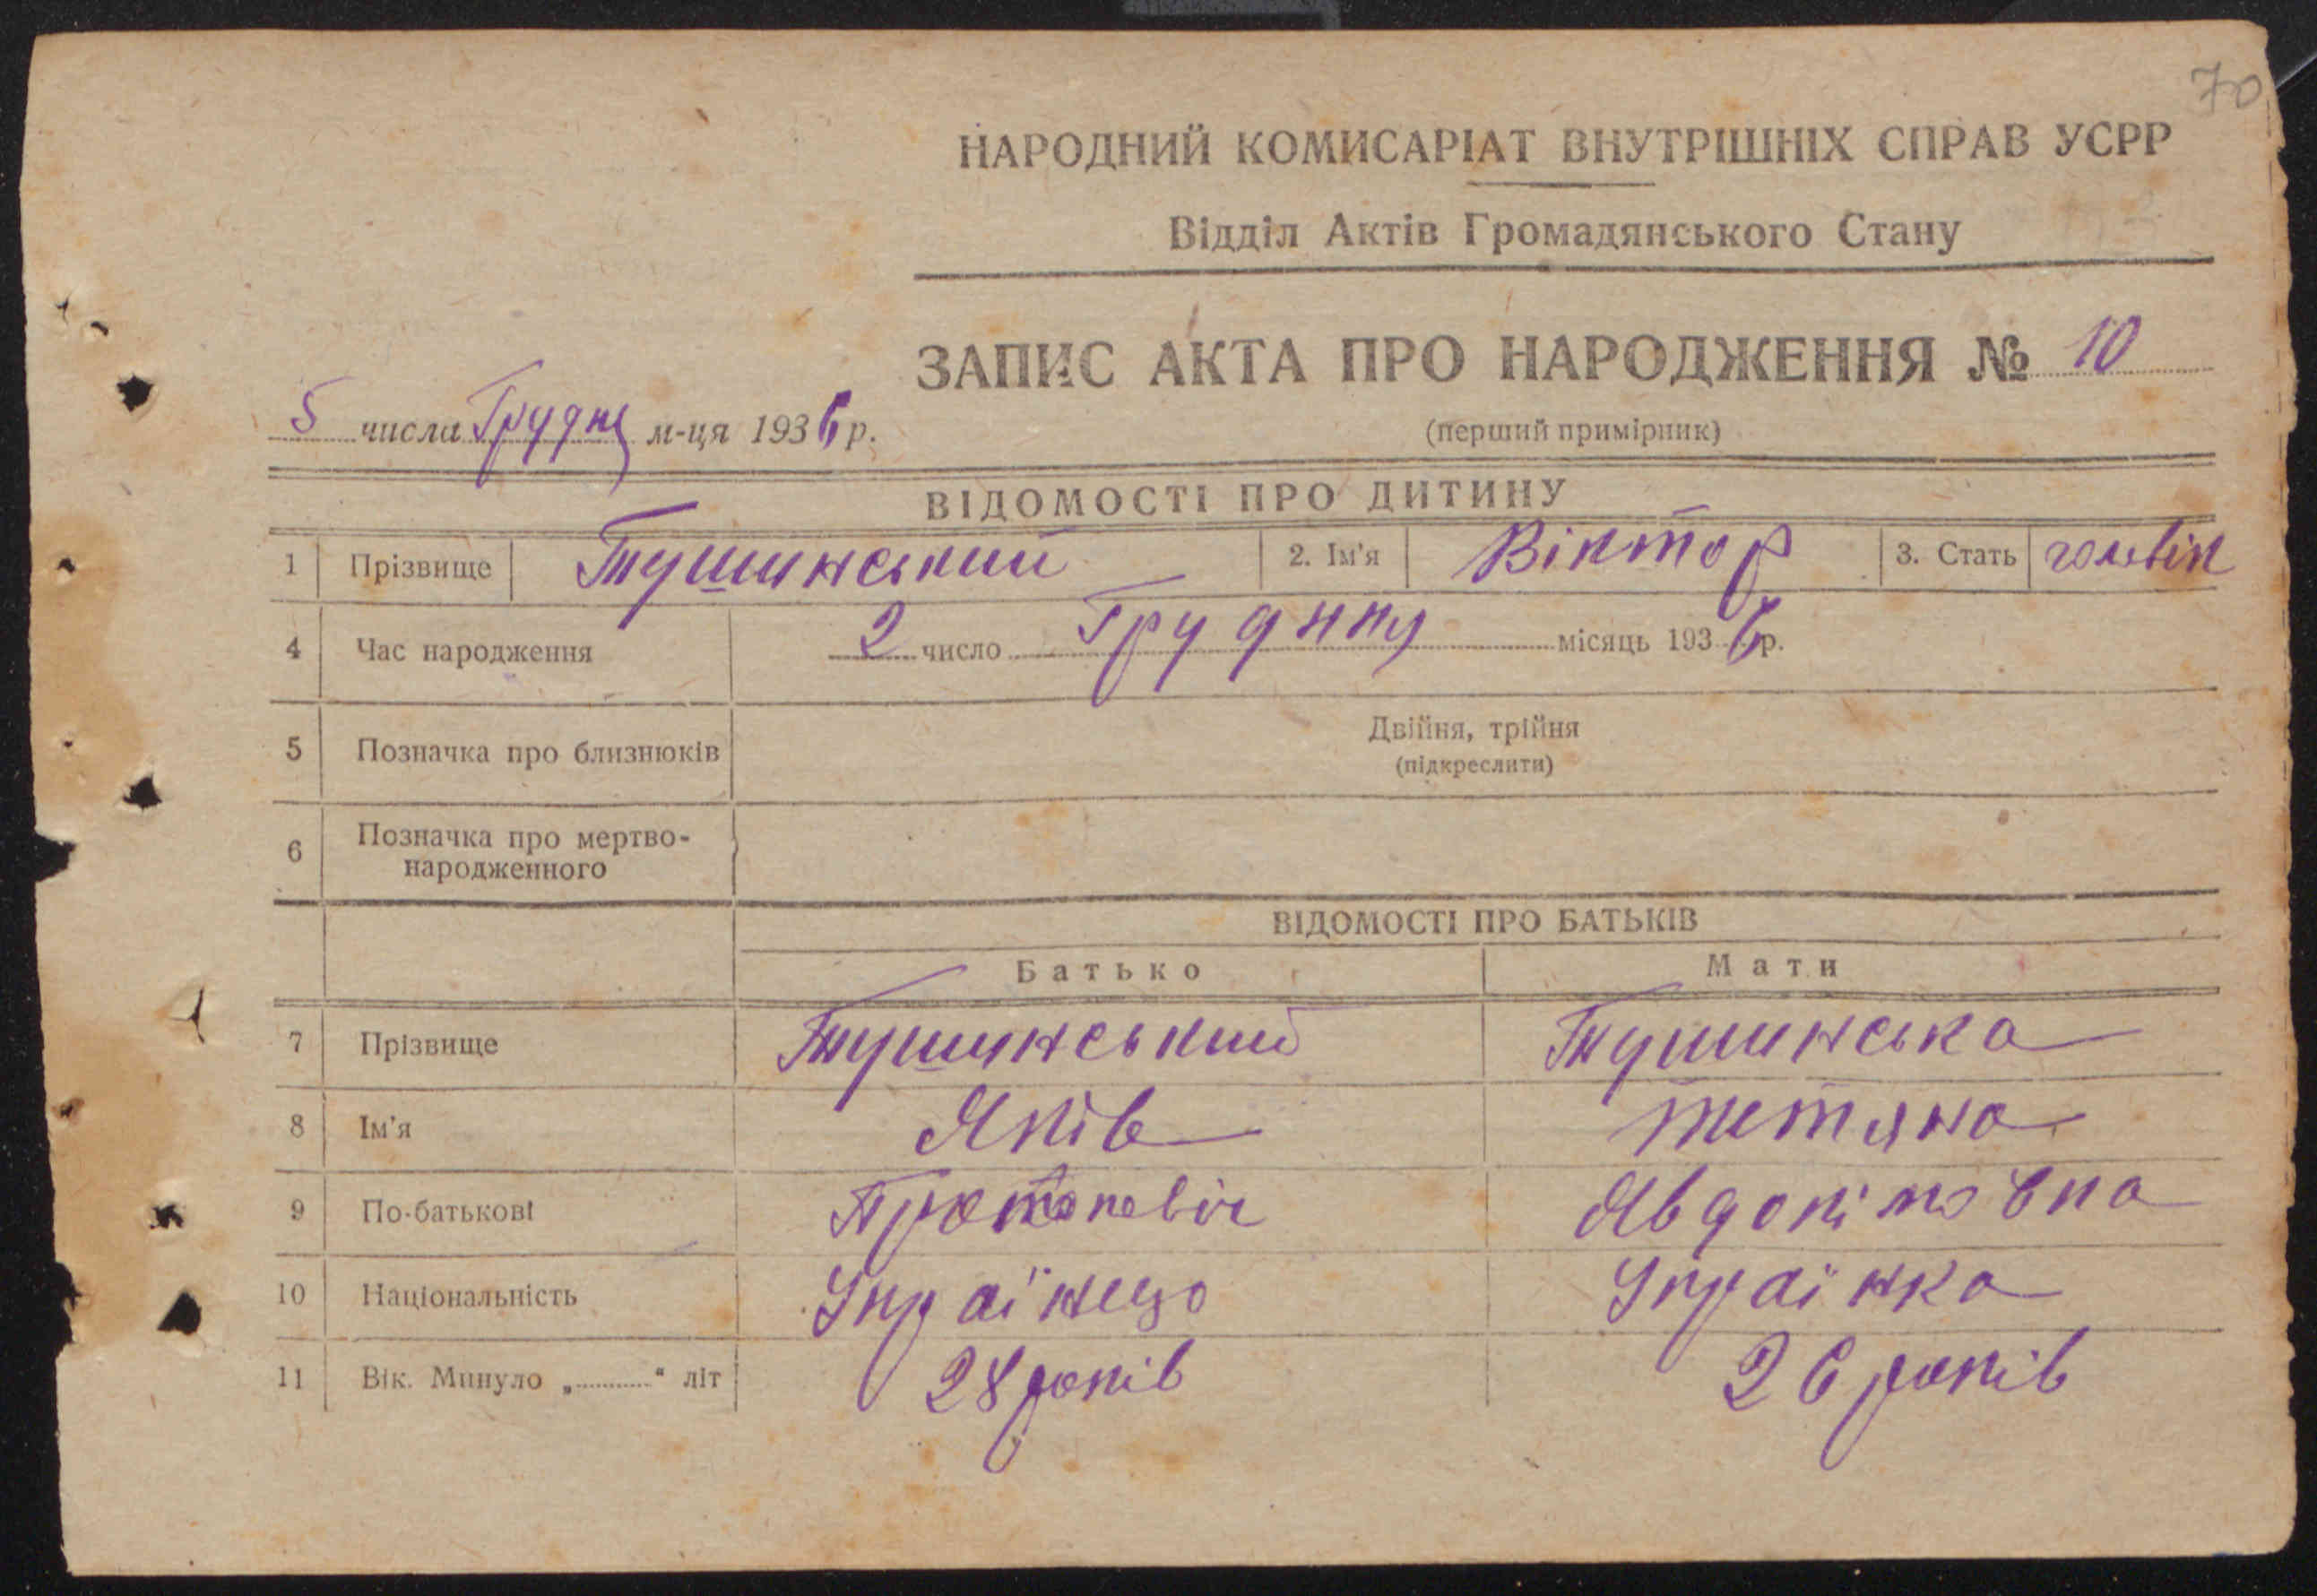 70
НАРОДНИЙ КОМИСАРІАТ ВНУТРІШНІХ СПРАВ УСРР
Відділ Актів Громадянського Стану
ЗАПИС АКТА ПРО НАРОДЖЕННЯ № 10
(перший примірник)
5 числа Грудня м-ця 1936 р.
ВІДОМОСТІ ПРО ДИТИНУ
1 Прізвище Тушинський 2. Ім'я Віктор 3. Стать чоловік
4 Час народження 2 число місяць 1936 р.
5 Позначка про близнюків Двійня, трійня
(підкреслити)
6 Позначка про мертво-
народженного
ВІДОМОСТІ ПРО БАТЬКІВ
Батько Мати
7 Прізвище Тушинський Тушинська
8 Ім'я Яків Тетяна
9 По-батькові
10 Національність Українець Українка
11 Вік. Минуло „ “ літ 28 років 26 років